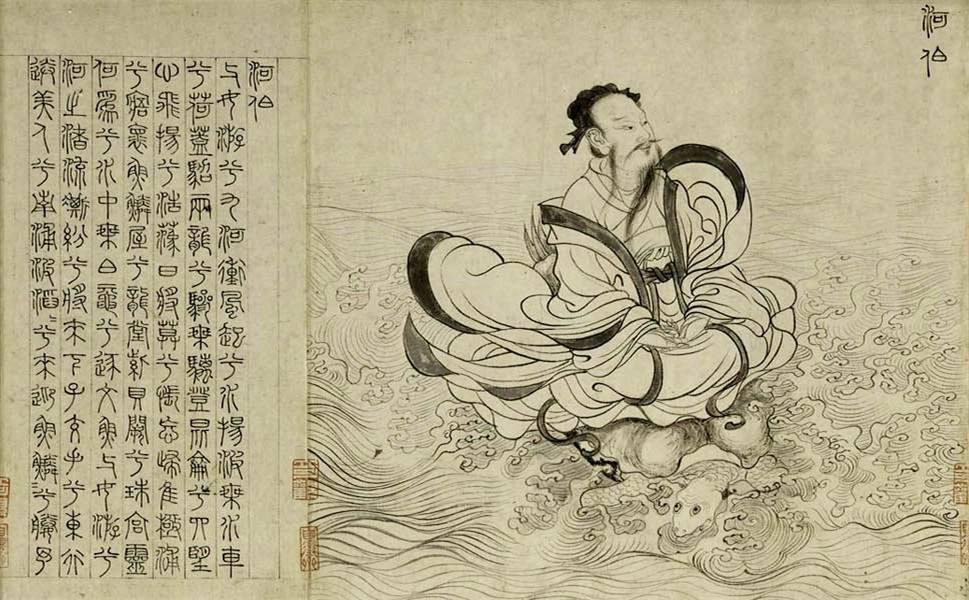 河伯
河伯
与女游兮九河衝風起兮水揚波乘水車
兮荷蓋駕兩龍兮驂乘螭登昆侖兮四望
心飛揚兮浩蕩日將暮兮悵忘歸惟極浦
兮寤懷魚鱗屋兮龍堂紫貝闕兮珠宮靈
何為兮水中乘白黿兮逐文魚与女游兮
河之渚流澌紛兮將來下子交手兮東行
送美人兮南浦波滔〻兮來迎魚鱗〻兮媵予